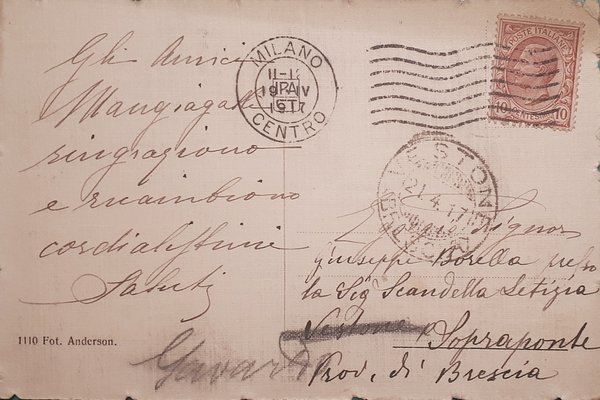 Gli Amici
Mangiagalli
ringraziono
e ricambiono
cordialissimi
Saluti
MILANO
CENTRO
11-12
19 IV
1917
POSTE ITALIANE
10 CENTESIMI 10
VESTONE
21.4.17
Signor
Giuseppe Borella presso
la Sig Scandella Letizia
Vestone Sopraponte
Gavardo Prov. di Brescia
1110 Fot. Anderson.